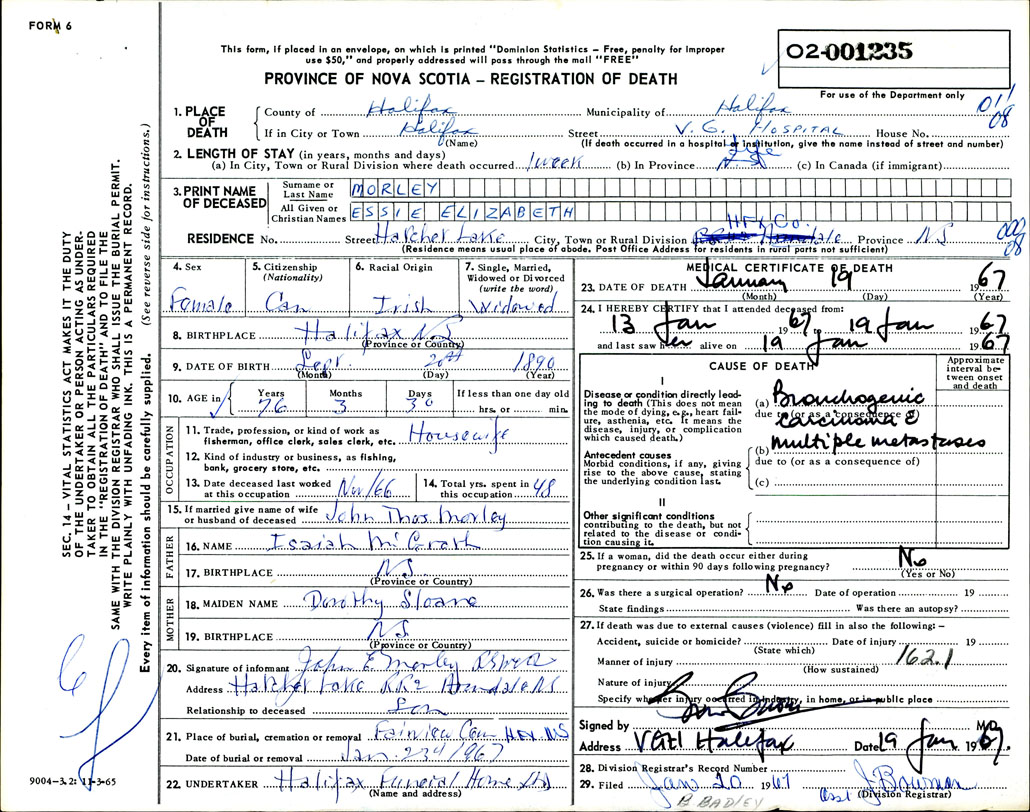 FORM 6
This form, if placed in an envelope, on which is printed "Dominion Statistics – Free, penalty for improper
use $50," and properly addressed will pass through the mail "FREE"
02-001235
PROVINCE OF NOVA SCOTIA – REGISTRATION OF DEATH
For use of the Department only
011
08
1. PLACE OF DEATH
County of Halifax Municipality of Halifax
If in City or Town Halifax Street V. G. HOSPITAL House No.
(Name) (If death occurred in a hospital or institution, give the name instead of street and number)
2. LENGTH OF STAY (in years, months and days)
(a) In City, Town or Rural Division where death occurred 1 week (b) In Province Life (c) In Canada (if immigrant)
3. PRINT NAME OF DECEASED
Surname or Last Name MORLEY
All Given or Christian Names ESSIE ELIZABETH
HFX Co.
RESIDENCE No. Street Hatchet Lake City, Town or Rural Division Province N.S
(Residence means usual place of abode. Post Office Address for residents in rural parts not sufficient)
08
4. Sex Female
5. Citizenship (Nationality) Can
6. Racial Origin Irish
7. Single, Married, Widowed or Divorced (write the word) Widowed
8. BIRTHPLACE Halifax N.S
(Province or Country)
9. DATE OF BIRTH Sept. 20th 1890
(Month) (Day) (Year)
10. AGE in Years 76 Months 3 Days 30 If less than one day old hrs. or min.
OCCUPATION
11. Trade, profession, or kind of work as fisherman, office clerk, sales clerk, etc. Housewife
12. Kind of industry or business, as fishing, bank, grocery store, etc.
13. Date deceased last worked at this occupation Nov/66
14. Total yrs. spent in this occupation 48
15. If married give name of wife or husband of deceased John Thos Morley
FATHER
16. NAME Isaiah McGrath
17. BIRTHPLACE N.S
(Province or Country)
MOTHER
18. MAIDEN NAME Dorothy Sloane
19. BIRTHPLACE N.S.
(Province or Country)
20. Signature of informant John E Morley
Address Hatchet Lake RR2 Armdale NS
Relationship to deceased Son
21. Place of burial, cremation or removal Fairview Cem HFX NS
Date of burial or removal Jan. 23rd 1967
22. UNDERTAKER Halifax Funeral Home Ltd
(Name and address)
MEDICAL CERTIFICATE OF DEATH
23. DATE OF DEATH January 19 1967
(Month) (Day) (Year)
24. I HEREBY CERTIFY that I attended deceased from:
13 Jan 1967 to 19 Jan 1967
and last saw her alive on 19 Jan 1967
CAUSE OF DEATH
Approximate interval between onset and death
I
Disease or condition directly leading to death (This does not mean the mode of dying, e.g., heart failure, asthenia, etc. It means the disease, injury, or complication which caused death.)
(a) Bronchogenic
due to (or as a consequence of)
carcinoma c̄
(b) multiple metastases
Antecedent causes
Morbid conditions, if any, giving rise to the above cause, stating the underlying condition last.
due to (or as a consequence of)
(c)
II
Other significant conditions
contributing to the death, but not related to the disease or condition causing it.
25. If a woman, did the death occur either during pregnancy or within 90 days following pregnancy? No
(Yes or No)
26. Was there a surgical operation? No Date of operation 19
State findings Was there an autopsy?
27. If death was due to external causes (violence) fill in also the following: –
Accident, suicide or homicide? Date of injury 19
(State which)
162.1
Manner of injury
(How sustained)
Nature of injury
Specify whether injury occurred in industry, in home, or in public place
Signed by M.D.
Address VGH Halifax Date 19 Jan 1967
28. Division Registrar's Record Number
29. Filed Jan 20 1967 J. Bowman
Asst (Division Registrar)
B BADLEY
SEC. 14 – VITAL STATISTICS ACT MAKES IT THE DUTY
OF THE UNDERTAKER OR PERSON ACTING AS UNDER-
TAKER TO OBTAIN ALL THE PARTICULARS REQUIRED
IN THE "REGISTRATION OF DEATH" AND TO FILE THE
SAME WITH THE DIVISION REGISTRAR WHO SHALL ISSUE THE BURIAL PERMIT.
WRITE PLAINLY WITH UNFADING INK. THIS IS A PERMANENT RECORD.
Every item of information should be carefully supplied. (See reverse side for instructions.)
9004-3.2: 11-3-65